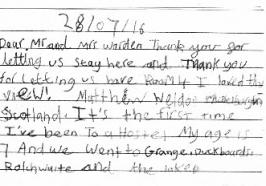 28/07/16
Dear, Mr and Mrs warden Thank you for
letting us stay here and Thank you
for Letting us have Room 4 I loved the
view! Matthew
Scotland. It's the first time
I've been To a Hostel My age is
7 And we went to Grange,
and the lakes